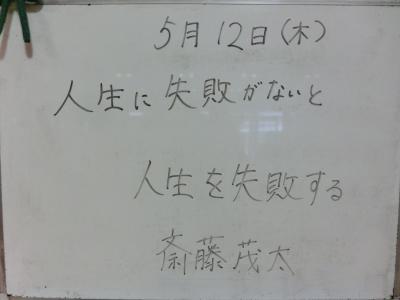 5月12日(木)
人生に失敗がないと
人生を失敗する
斎藤茂太